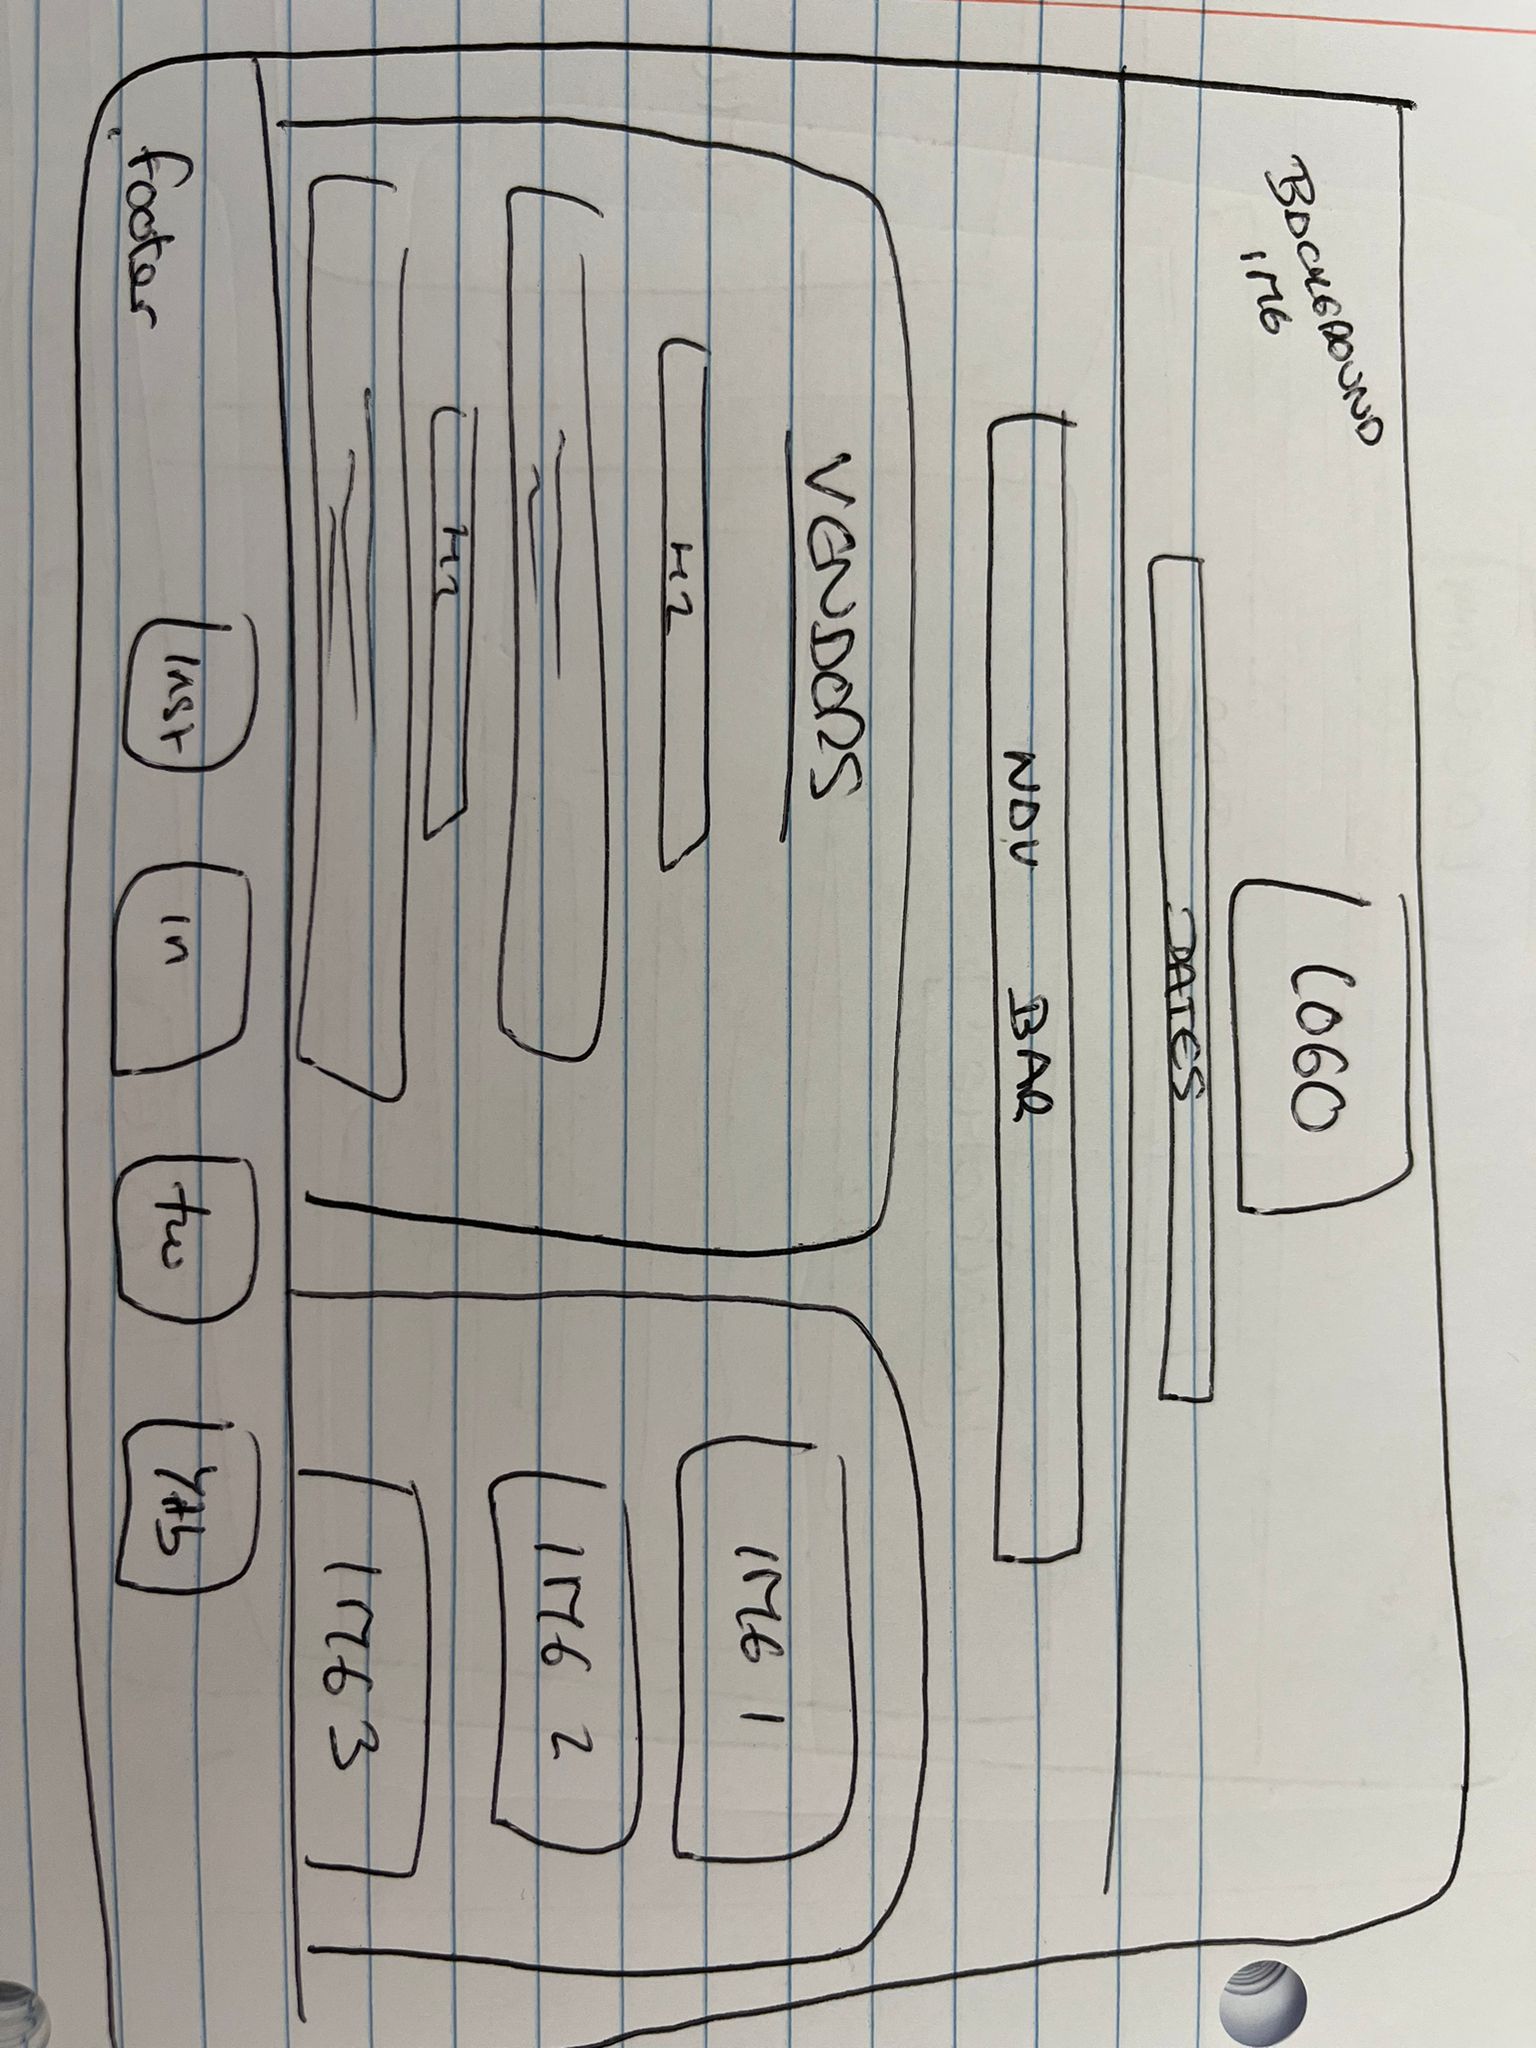 BACKGROUND
IMG
LOGO
DATES
NAV BAR
VENDORS
H2
H2
IMG 1
IMG 2
IMG 3
footer
inst
in
tw